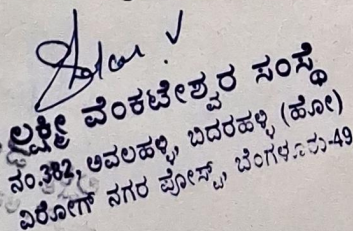 ಲಕ್ಷ್ಮೀ ವೆಂಕಟೇಶ್ವರ ಸಂಸ್ಥೆ
ನಂ.382, ಅವಲಹಳ್ಳಿ, ಬಿದರಹಳ್ಳಿ (ಹೋ)
ವಿರ್ಗೋಗ್ ನಗರ ಪೋಸ್ಟ್, ಬೆಂಗಳೂರು-49